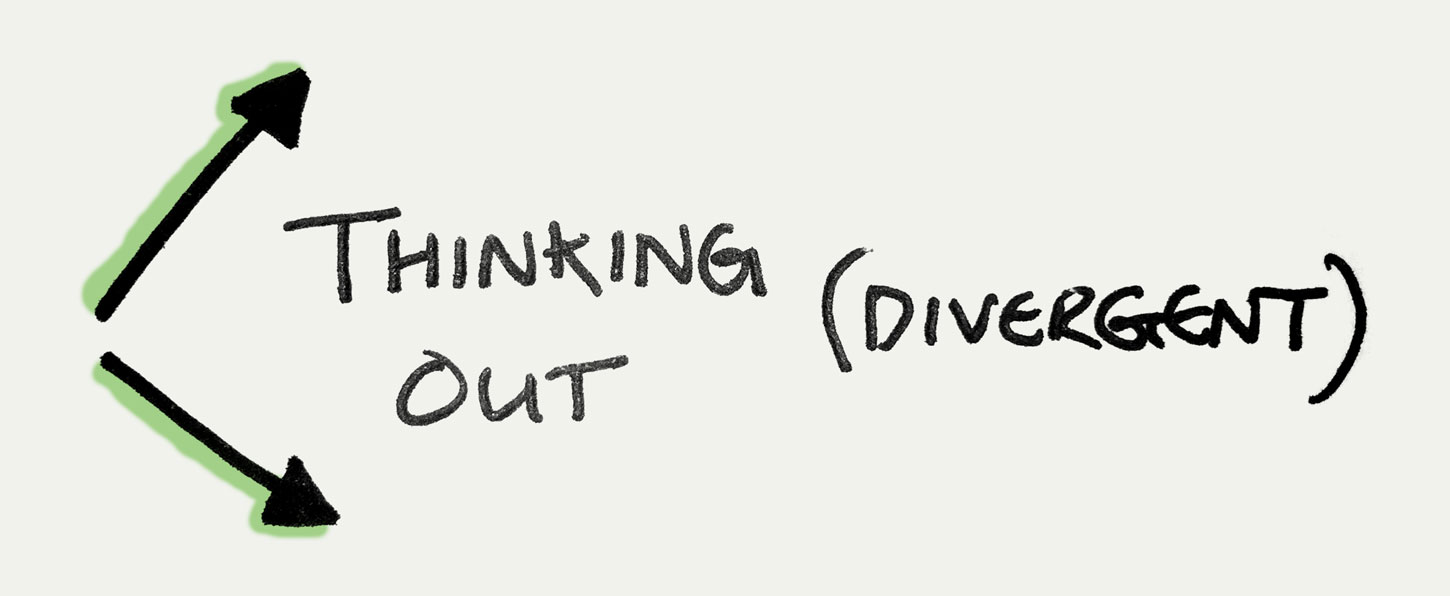 THINKING
OUT
(DIVERGENT)